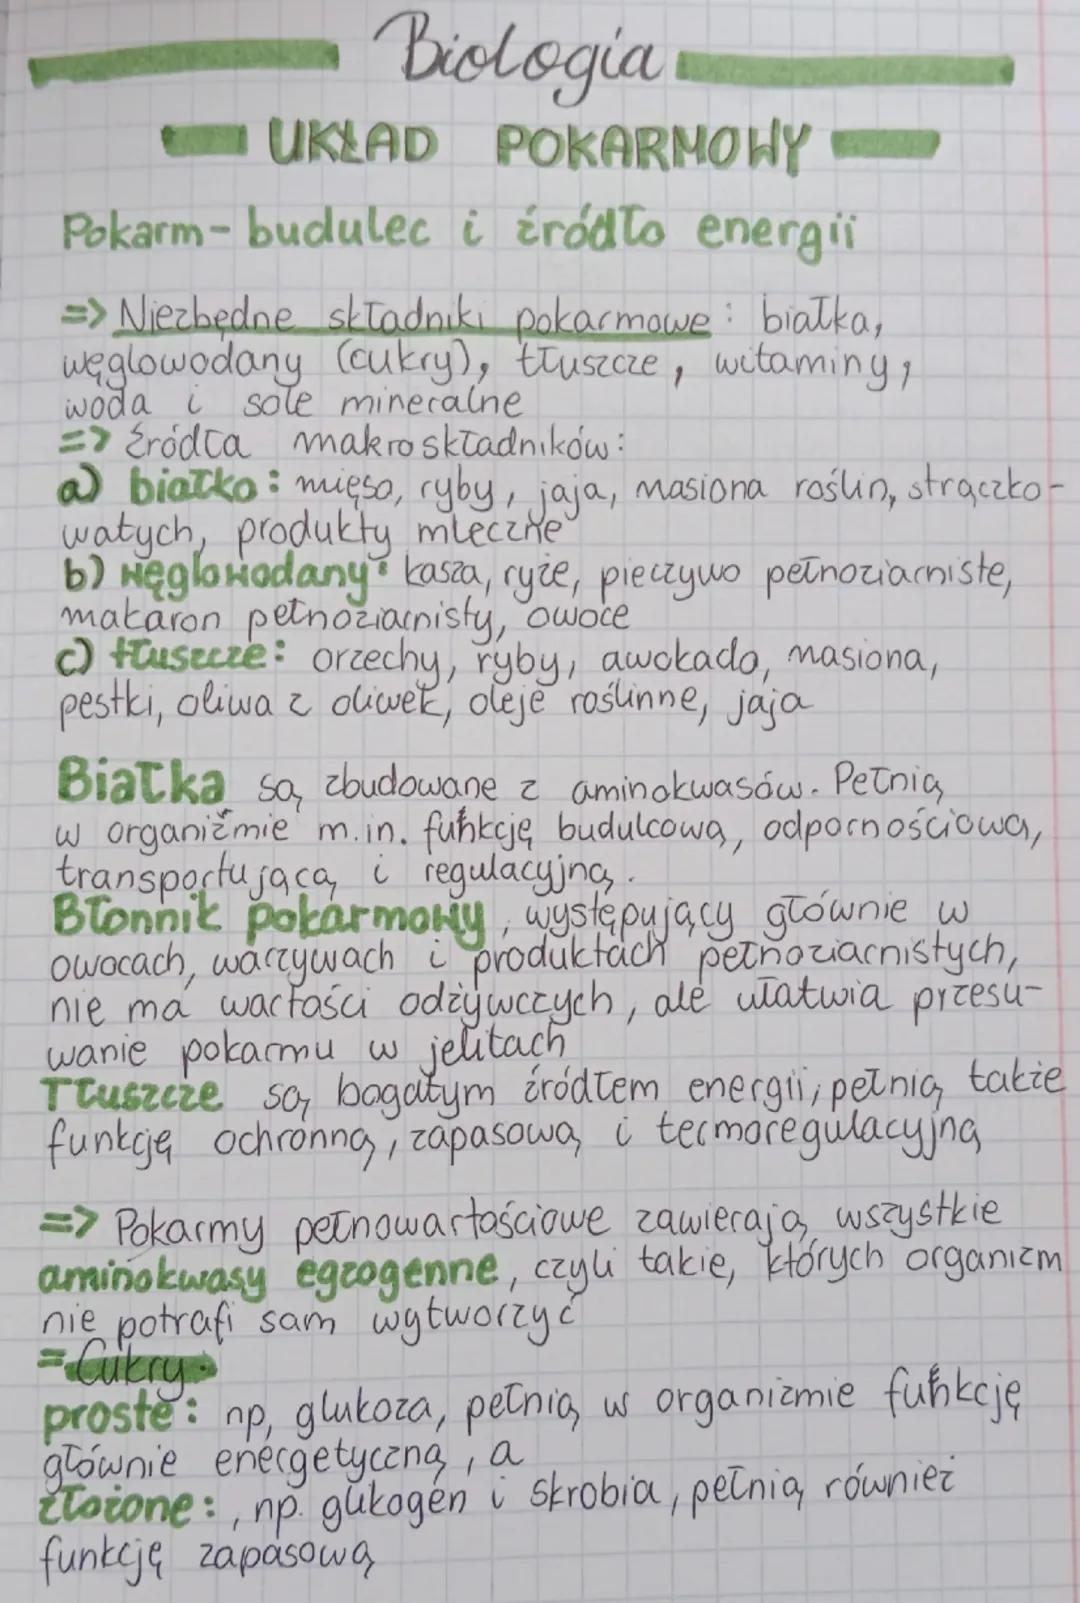 Biologia
UKŁAD POKARMOWY
Pokarm - budulec i źródło energii
=> Niezbędne składniki pokarmowe: białka,
węglowodany (cukry), tłuszcze, witaminy,
woda i sole mineralne
=> Źródła makroskładników:
a) białko: mięso, ryby, jaja, nasiona roślin, strączko-
watych, produkty mleczne
b) węglowodany: kasza, ryże, pieczywo pełnoziarniste,
makaron pełnoziarnisty, owoce
c) tłuszcze: orzechy, ryby, awokado, nasiona,
pestki, oliwa z oliwek, oleje roślinne, jaja
Białka są zbudowane z aminokwasów. Pełnią
w organiźmie m.in. funkcję budulcową, odpornościową,
transportującą i regulacyjną.
Błonnik pokarmowy, występujący głównie w
owocach, warzywach i produktach pełnoziarnistych,
nie ma wartości odżywczych, ale ułatwia przesu-
wanie pokarmu w jelitach
Tłuszcze są bogatym źródłem energii, pełnią także
funkcję ochronną, zapasową i termoregulacyjną
=> Pokarmy pełnowartościowe zawierają wszystkie
aminokwasy egzogenne, czyli takie, których organizm
nie potrafi sam wytworzyć
= Cukry:
proste: np, glukoza, pełnią w organizmie funkcję
głównie energetyczną, a
złożone:, np. glikogen i skrobia, pełnią również
funkcję zapasową